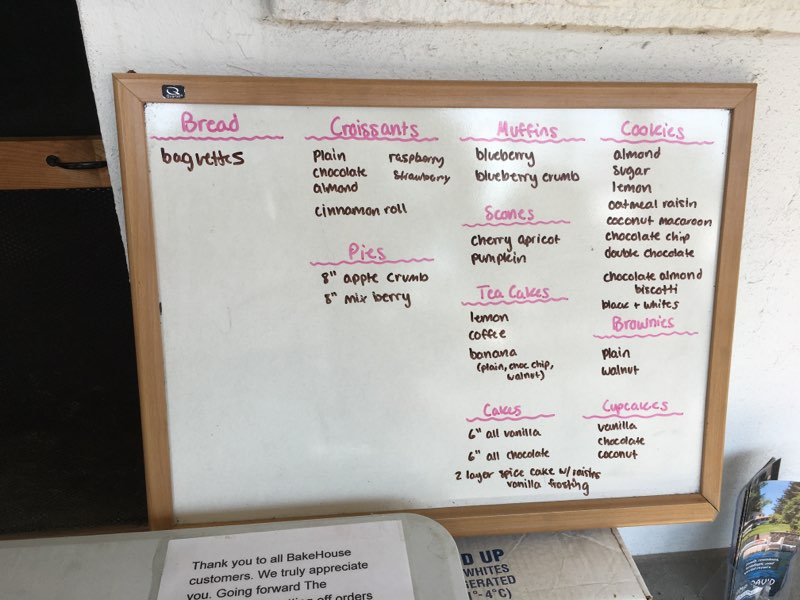 Bread
baguettes
Croissants
Plain
chocolate
almond
raspberry
strawberry
cinnamon roll
Pies
8" apple crumb
8" mix berry
Muffins
blueberry
blueberry crumb
Scones
cherry apricot
pumpkin
Tea Cakes
lemon
coffee
banana
(plain, choc chip,
walnut)
Cakes
6" all vanilla
6" all chocolate
2 layer spice cake w/ raisins
vanilla frosting
Cookies
almond
sugar
lemon
oatmeal raisin
coconut macaroon
chocolate chip
double chocolate
chocolate almond
biscotti
black + whites
Brownies
plain
walnut
Cupcakes
vanilla
chocolate
coconut
Thank you to all BakeHouse
customers. We truly appreciate
you. Going forward The
off orders
D UP
WHITES
ERATED
- 4°C)
DAVID